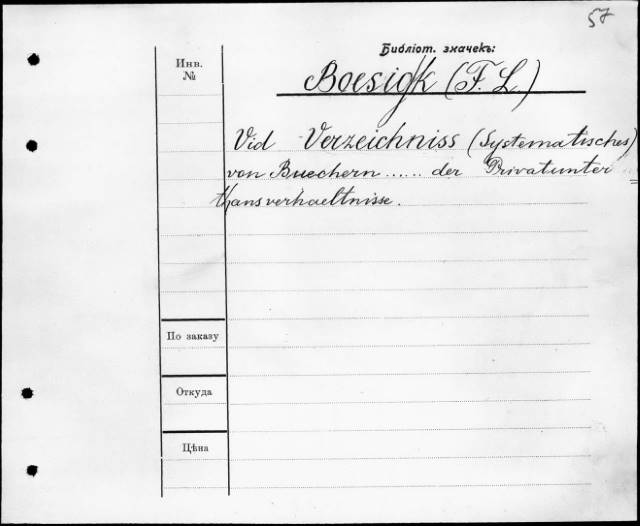 57
Библіот. значекъ:
Инв.
№
Boesigk (F. L.)
Vid Verzeichniss (Systematisches)
von Buechern ...... der Privatunter=
thansverhaeltnisse.
По заказу
Откуда
Цѣна